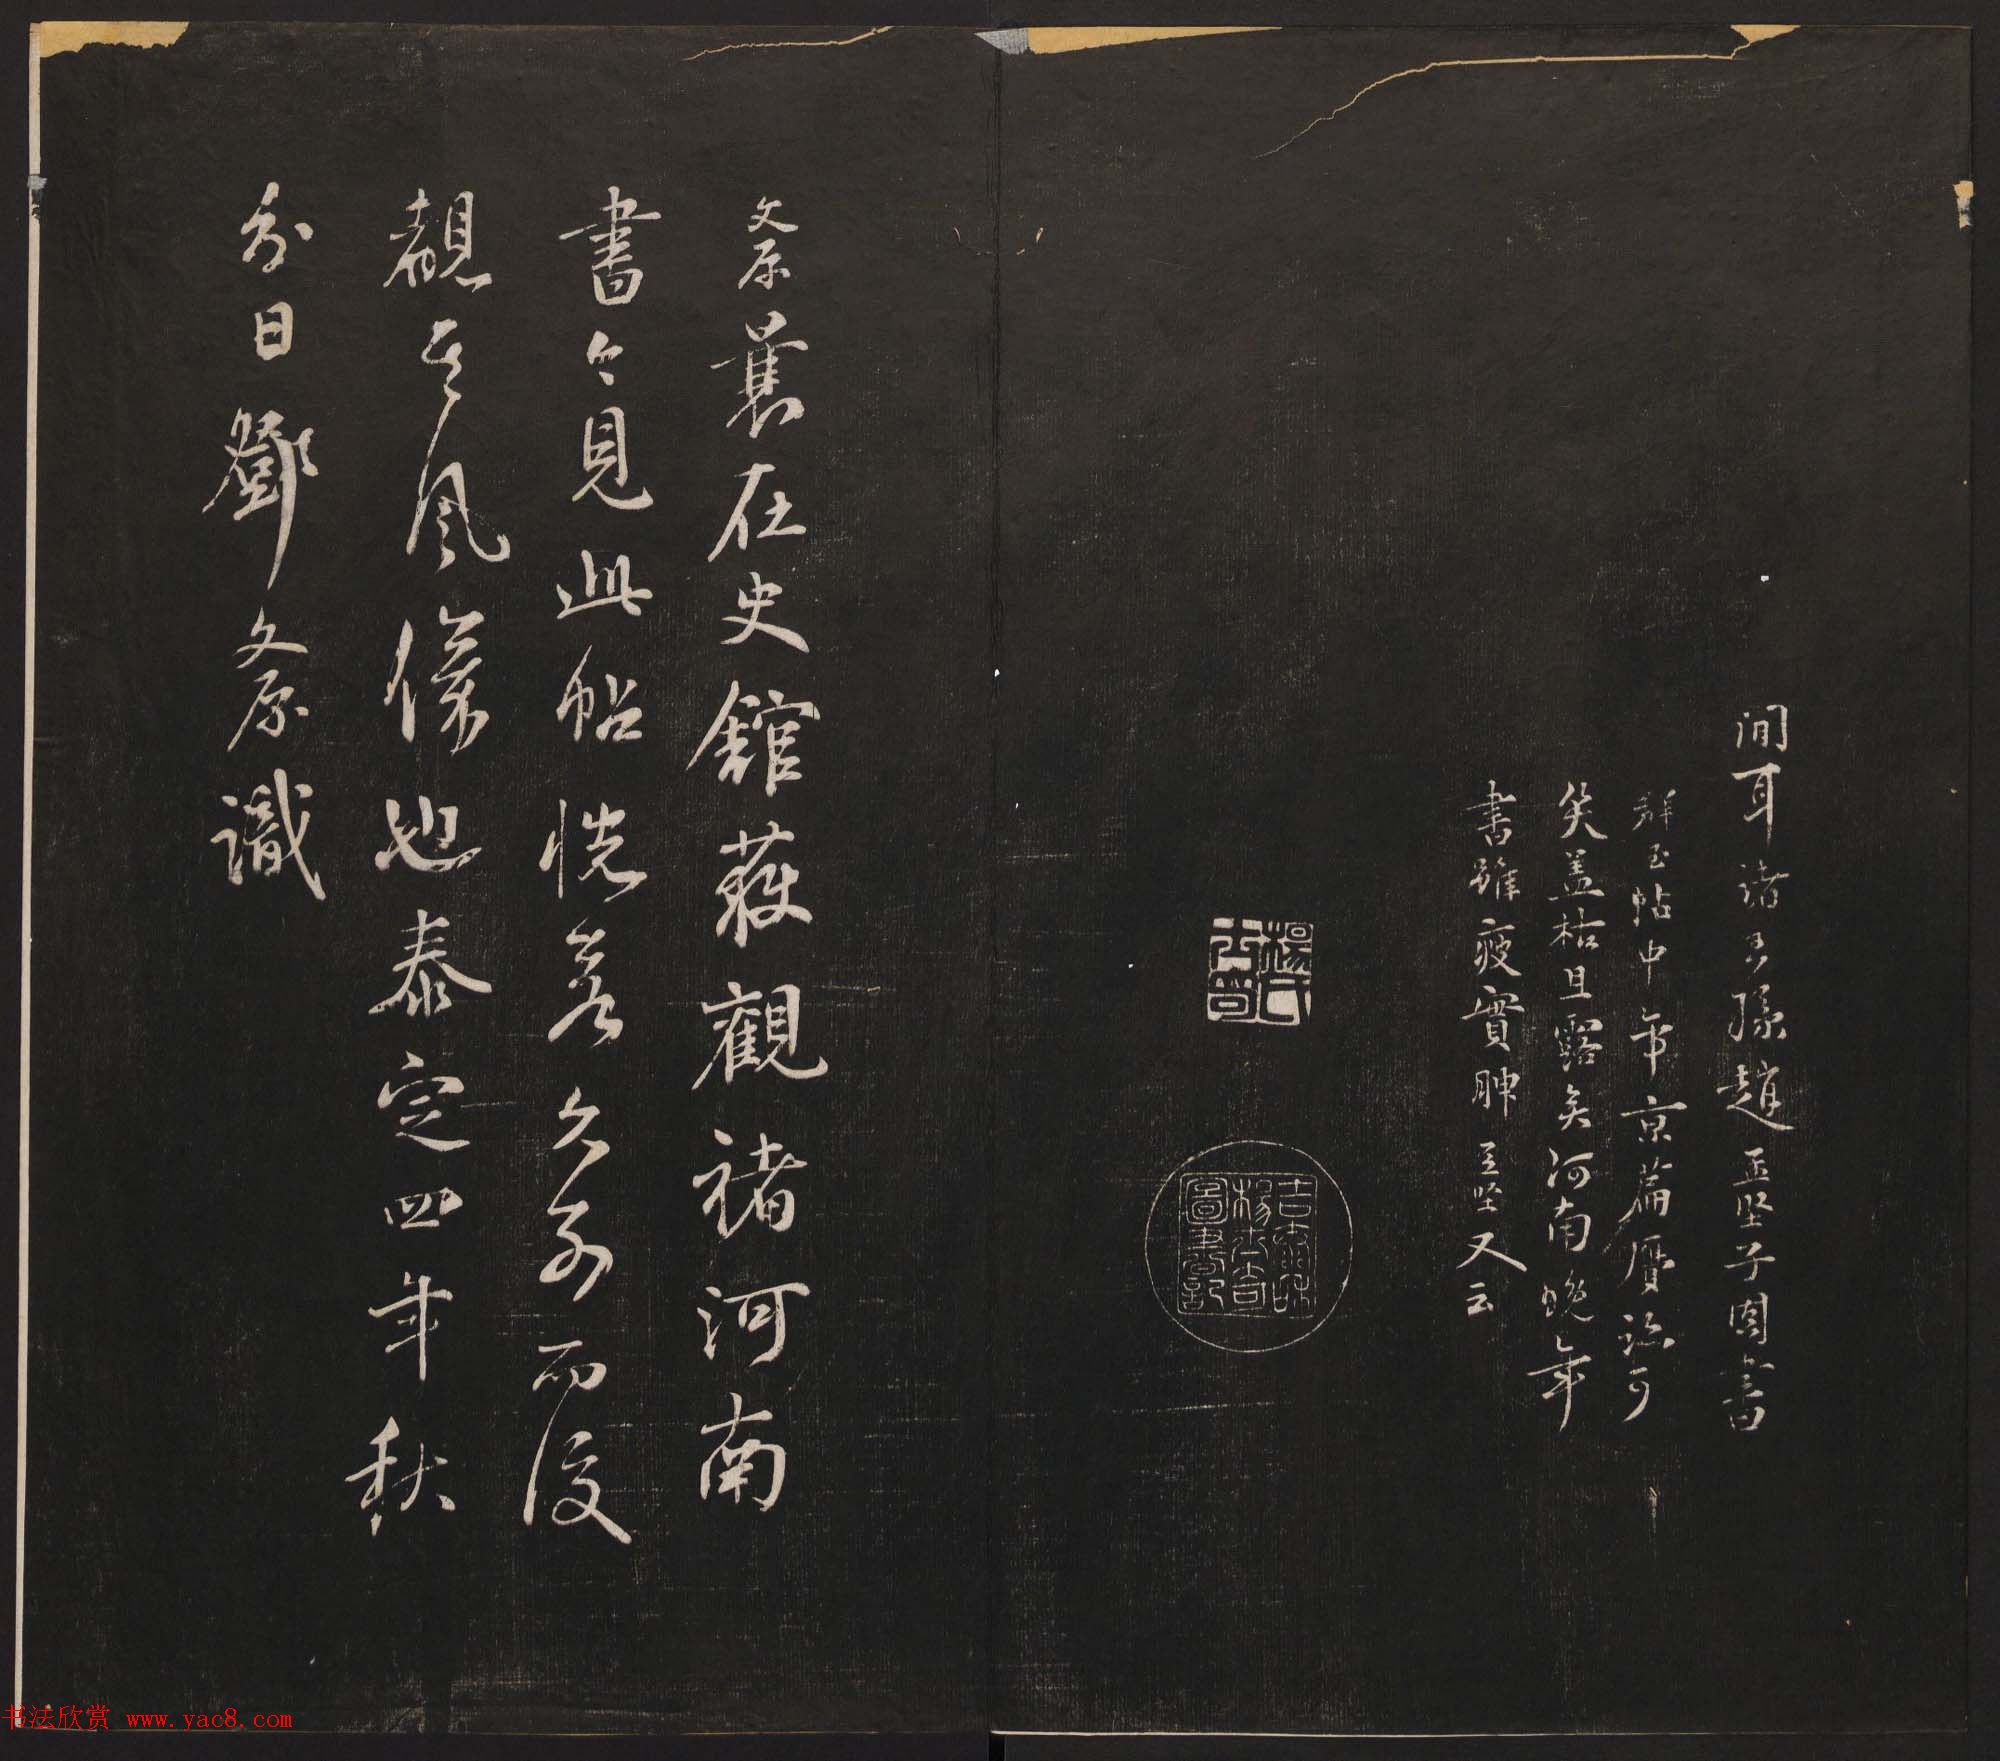 間耳諸王孫趙孟堅子固書
群玉帖中年京篇贗跡可
笑蓋枯且露矣河南晚年
書雖疲實腴孟堅又云
文原舊在史館獲觀褚河南
書今見此帖恍若久別而復
覩其風儀也泰定四年秋
分日鄧文原識
书法欣赏 www.yac8.com